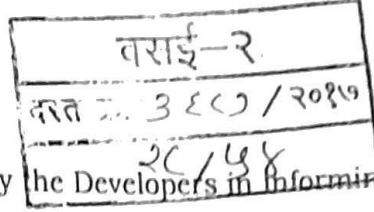 वसई–२
दस्त ... ३६८७ / २०१७
२८/५४
y the Developers in informin